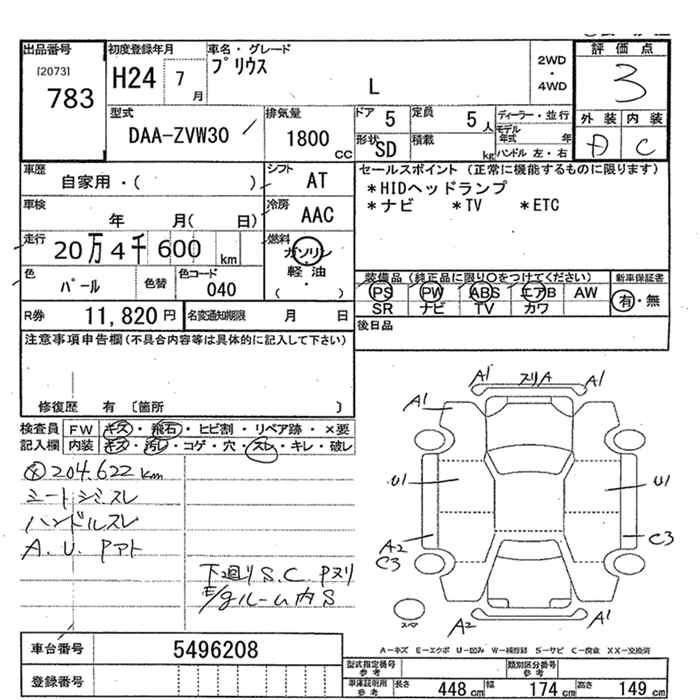 出品番号 初度登録年月 車名・グレード 評価点
[2073] 783 H24 7月 プリウス L 2WD・4WD 3
型式 排気量 ドア 5 定員 5人 ディーラー・並行 外装 内装
DAA-ZVW30 1800cc 形状 SD 積載 kg モデル年式 年 ハンドル 左・右 C
車歴 自家用・( ) シフト AT セールスポイント (正常に機能するものに限ります)
*HIDヘッドランプ
車検 年 月( 日) 冷房 AAC *ナビ *TV *ETC
走行 20万4千600km 燃料 ガソリン・軽油 ( )
色 パール 色替 色コード 040 装備品(純正品に限り○をつけてください) 新車保証書
PS PW ABS エアB AW 有・無
R券 11,820円 名変通知期限 月 日 SR ナビ TV カワ
後日品
注意事項申告欄(不具合内容等は具体的に記入して下さい)
修復歴 有 〔箇所 〕
検査員 FW キズ・飛石・ヒビ割・リペア跡・×要
記入欄 内装 キズ・汚レ・コゲ・穴・スレ・キレ・破レ
204.622km
シートシミスレ
ハンドルスレ
A.U.Pアト
下回りS.C Pヌリ
E/gルーム内S
A1 スリA A1
A1
U1 U1
A2 C3
C3
A2 A1
スペ
A-キズ E-エクボ U-凹み W-補修跡 S-サビ C-腐食 XX-交換済
車台番号 5496208 型式指定番号 参考 類別区分番号 参考
登録番号 車庫証明用 参考 長さ 448cm 幅 174cm 高さ 149cm